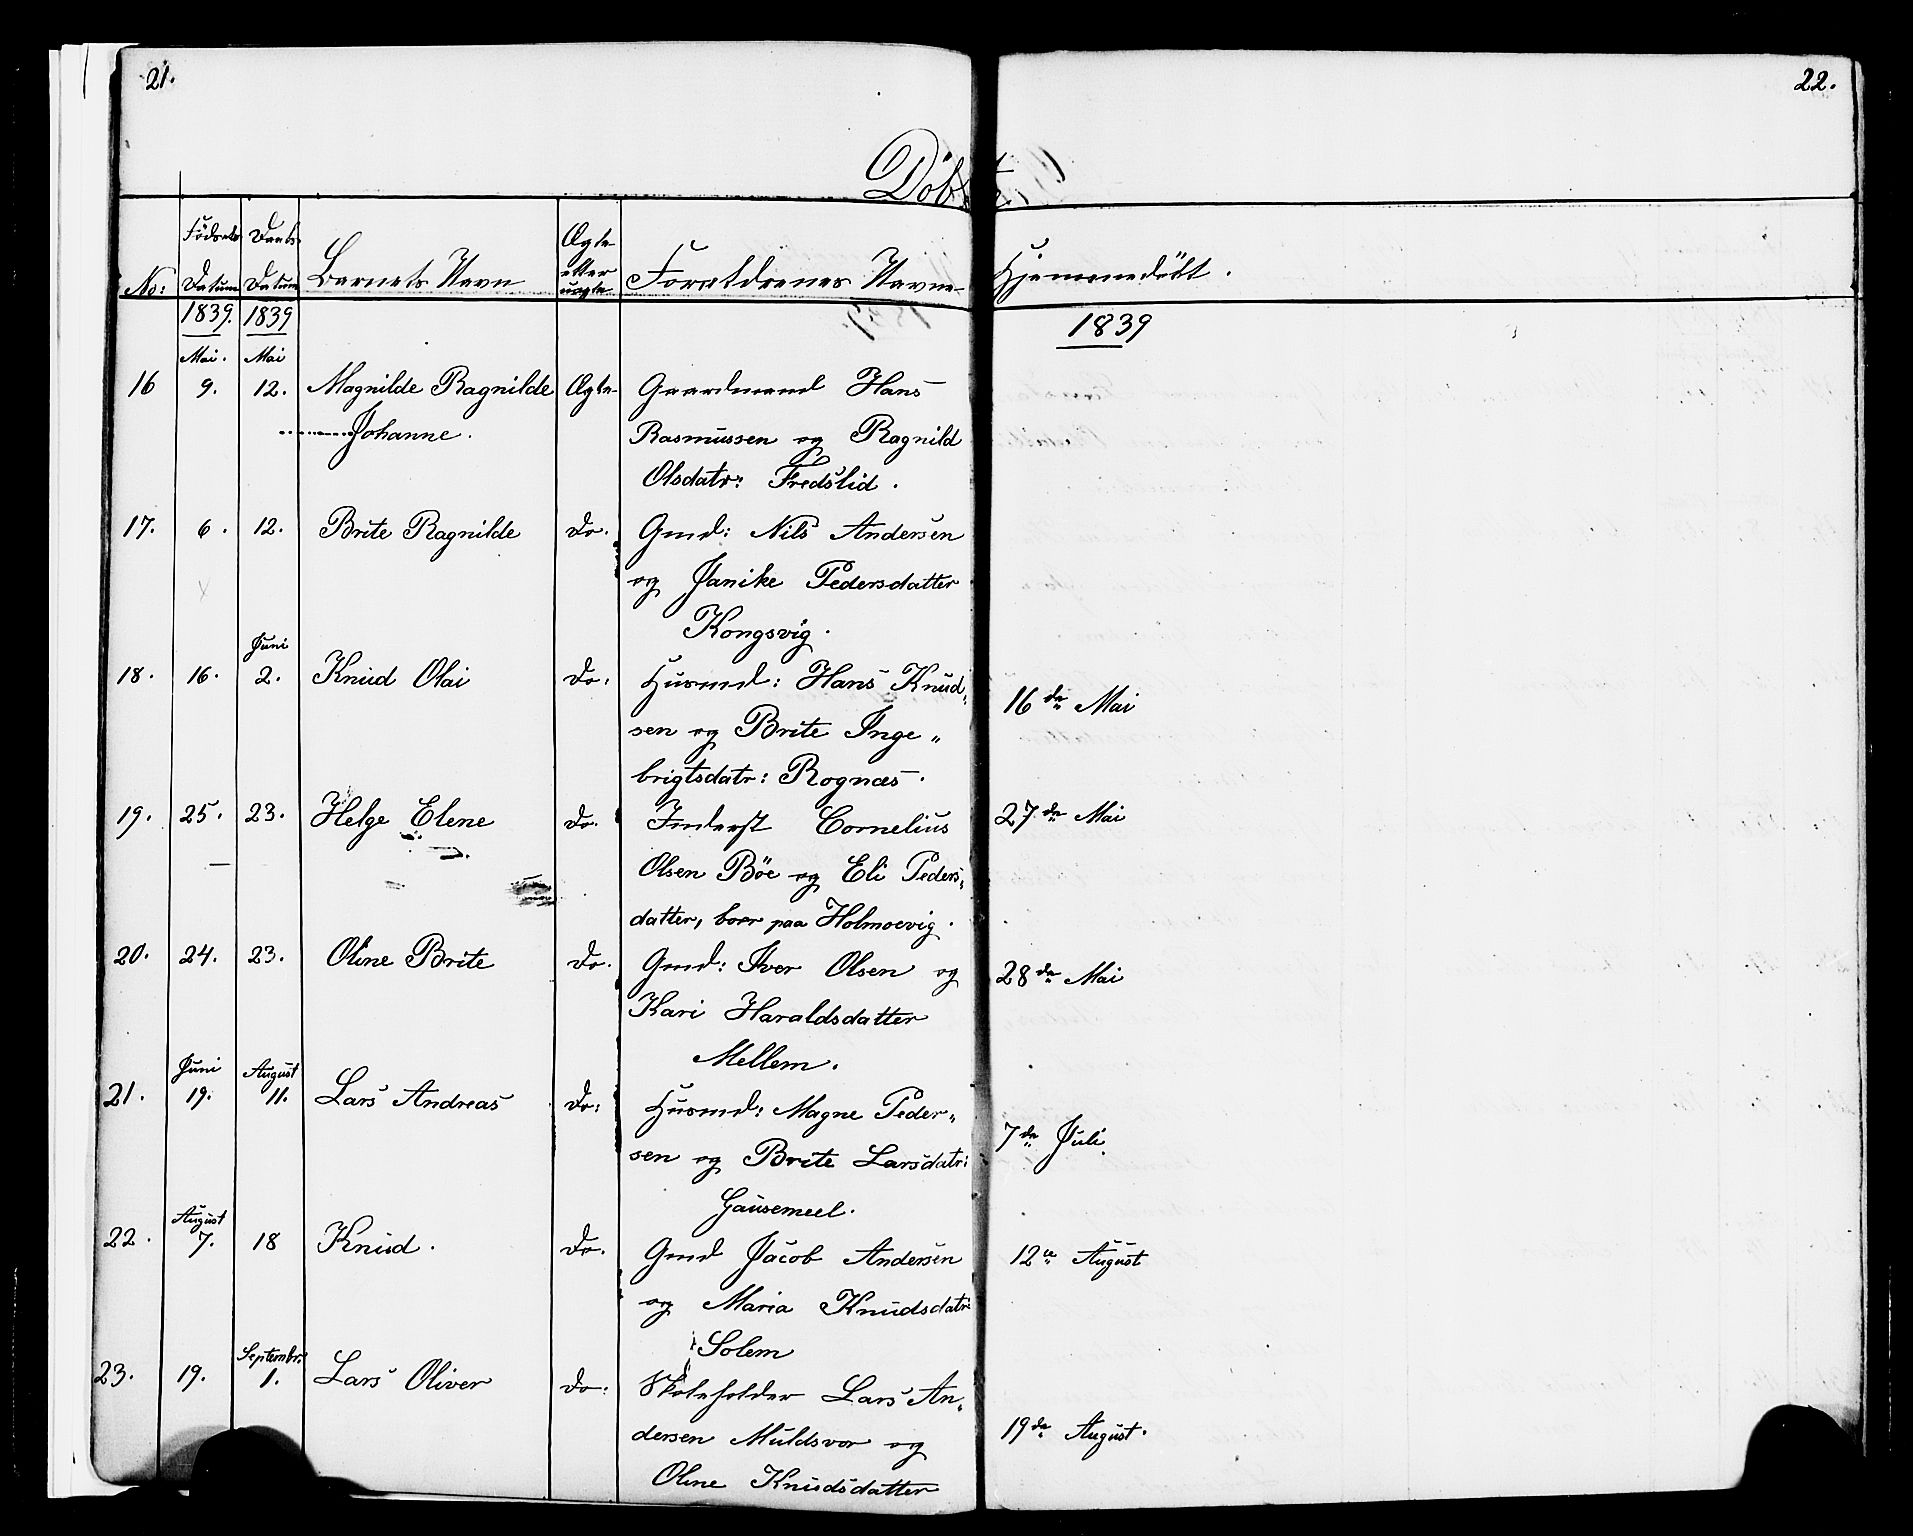 21.
22.
Döbte
No: Födsels Datum Daabs Datum Barnets Navn Ægte eller uægte Forældrenes Navne Hjemmedöbt.
1839. 1839 1839
Mai. Mai
16 9. 12. Magnilde Ragnilde Ægte Gaardmand Hans
Johanne. Rasmussen og Ragnild
Olsdatr: Fredslid.
17. 6. 12. Brite Ragnilde Do. Gmd: Nils Andersen
og Janike Pedersdatter
Kongsvig.
Juni
18. 16. 2. Knud Olai Do. Husmd: Hans Knud„ 16de Mai
sen og Brite Inge„
brigtsdatr: Rognæs.
19. 25. 23. Helge Elene Do. Inderst Cornelius 27de Mai
Olsen Böe og Eli Peders„
datter, boer paa Holmoevig.
20. 24. 23. Oline Brite Do. Gmd: Iver Olsen og 28de Mai
Kari Haraldsdatter
Mellem.
Juni August
21. 19. 11. Lars Andreas Do: Husmd: Magne Peder„ 7de Juli.
sen og Brite Larsdatr:
Gausemeel.
August
22. 7. 18 Knud. Do. Gmd Jacob Andersen 12te August
og Maria Knudsdatr:
Solem
Septembr:
23. 19. 1. Lars Oliver Do: Skoleholder Lars An„ 19de August.
dersen Muldsvor og
Oline Knudsdatter